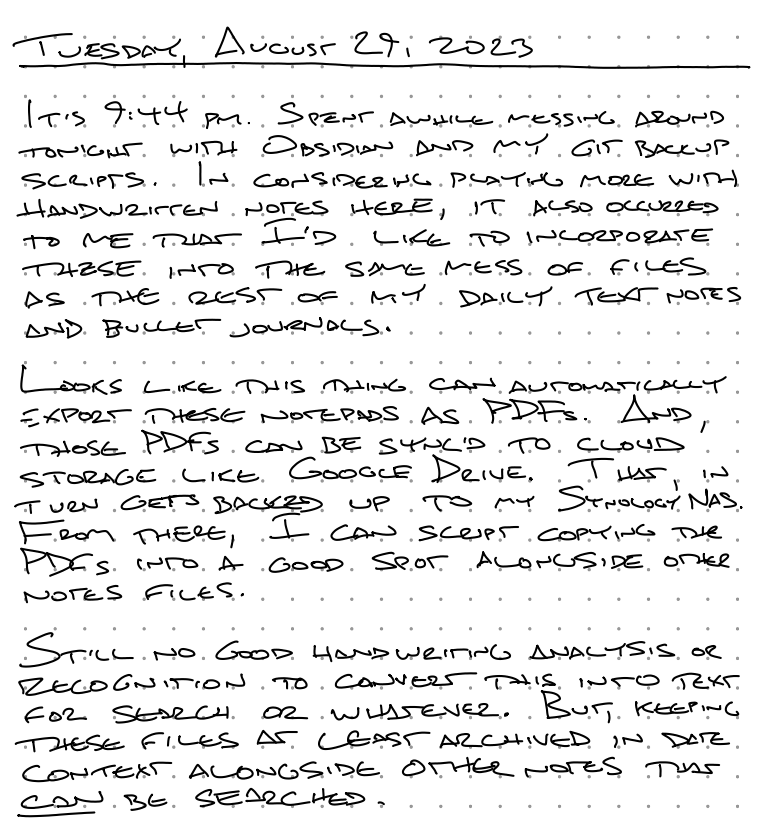 Tuesday, August 29, 2023
It's 9:44 pm. Spent awhile messing around
tonight with Obsidian and my git backup
scripts. In considering playing more with
handwritten notes here, it also occurred
to me that I'd like to incorporate
these into the same mess of files
as the rest of my daily text notes
and bullet journals.
Looks like this thing can automatically
export these notepads as PDFs. And,
those PDFs can be sync'd to cloud
storage like Google Drive. That, in
turn gets backed up to my Synology NAS.
From there, I can script copying the
PDFs into a good spot alongside other
notes files.
Still no good handwriting analysis or
recognition to convert this into text
for search or whatever. But, keeping
these files at least archived in date
context alongside other notes that
can be searched.